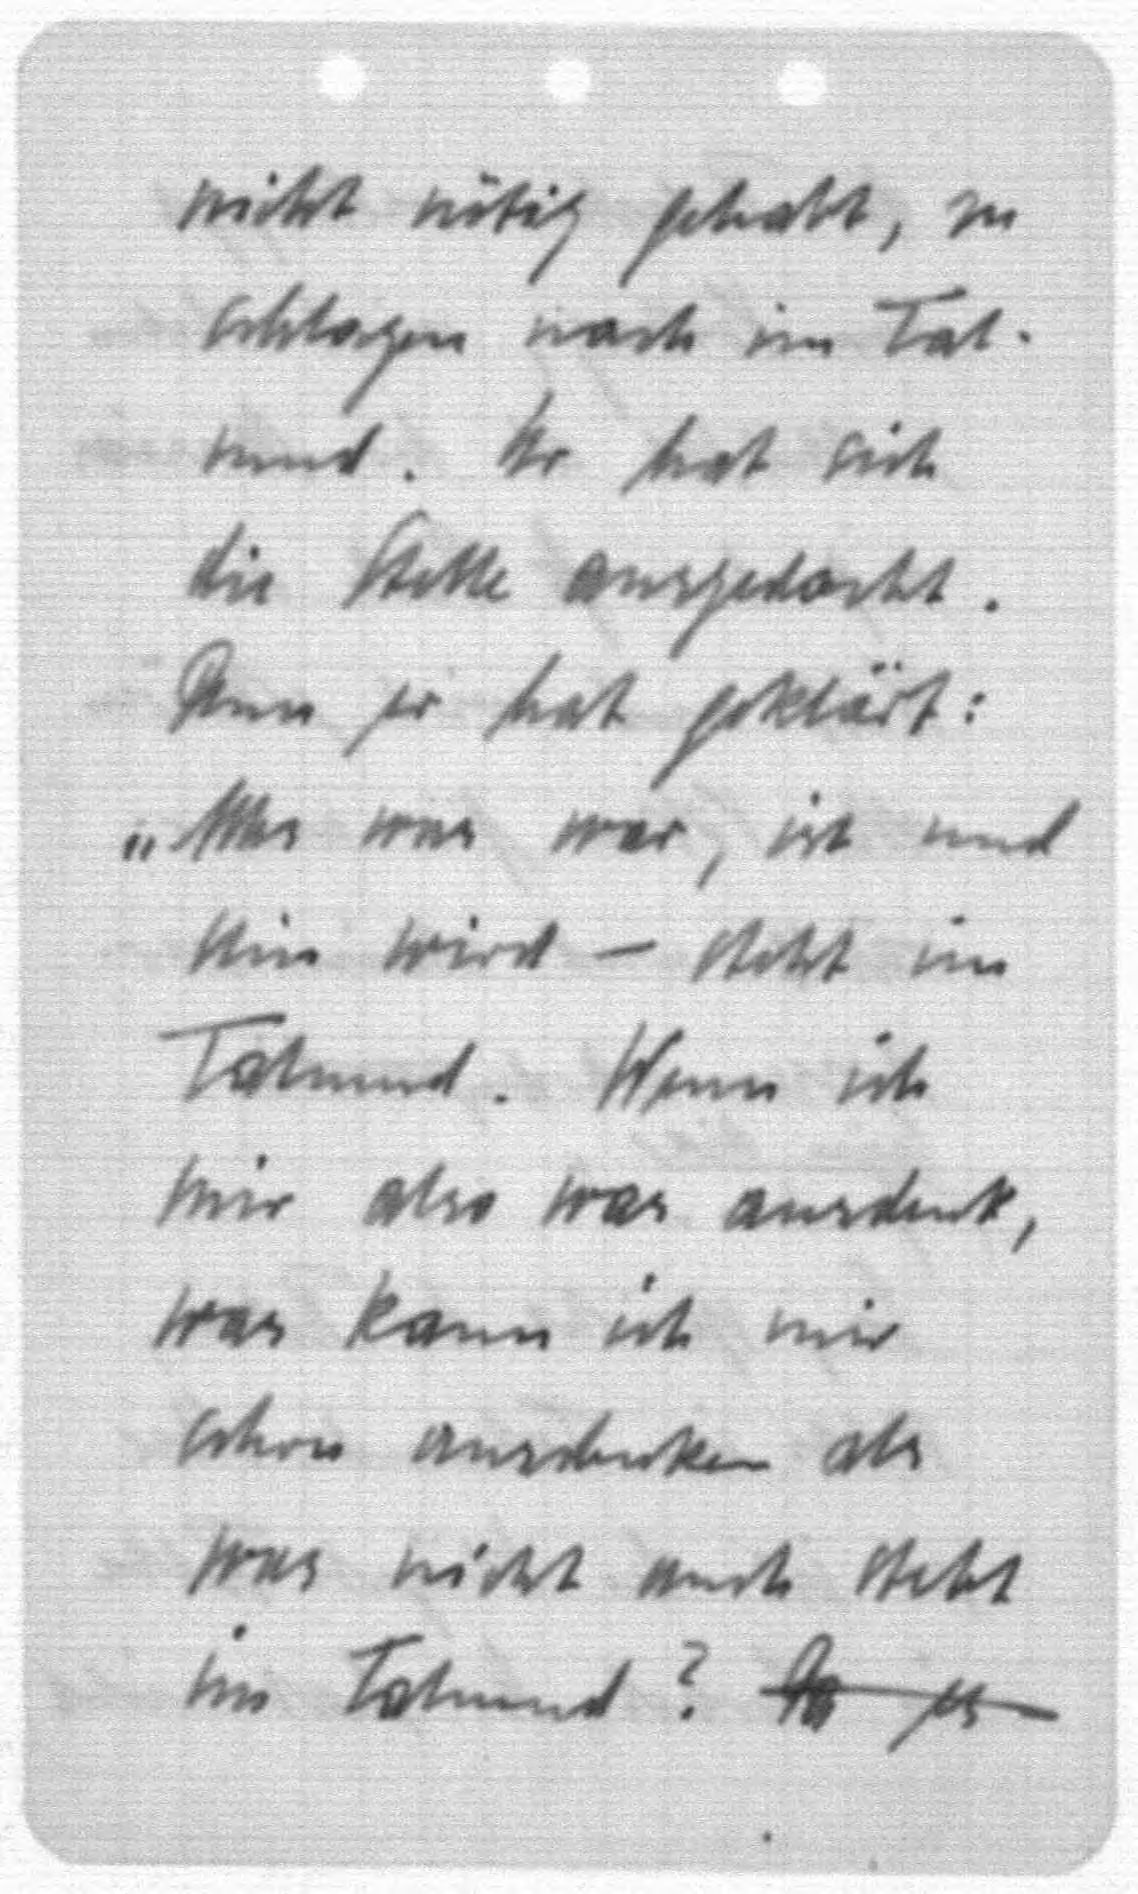 nicht nötig gehabt, zu
schlagen nach im Tal-
mud. Er hat sich
die Stelle ausgedacht.
Denn er hat geklärt:
„Alles was war, ist und
sein wird – steht im
Talmud. Wenn ich
mir also was ausdenk,
was kann ich mir
schon ausdenken als
was nicht auch steht
im Talmud? es